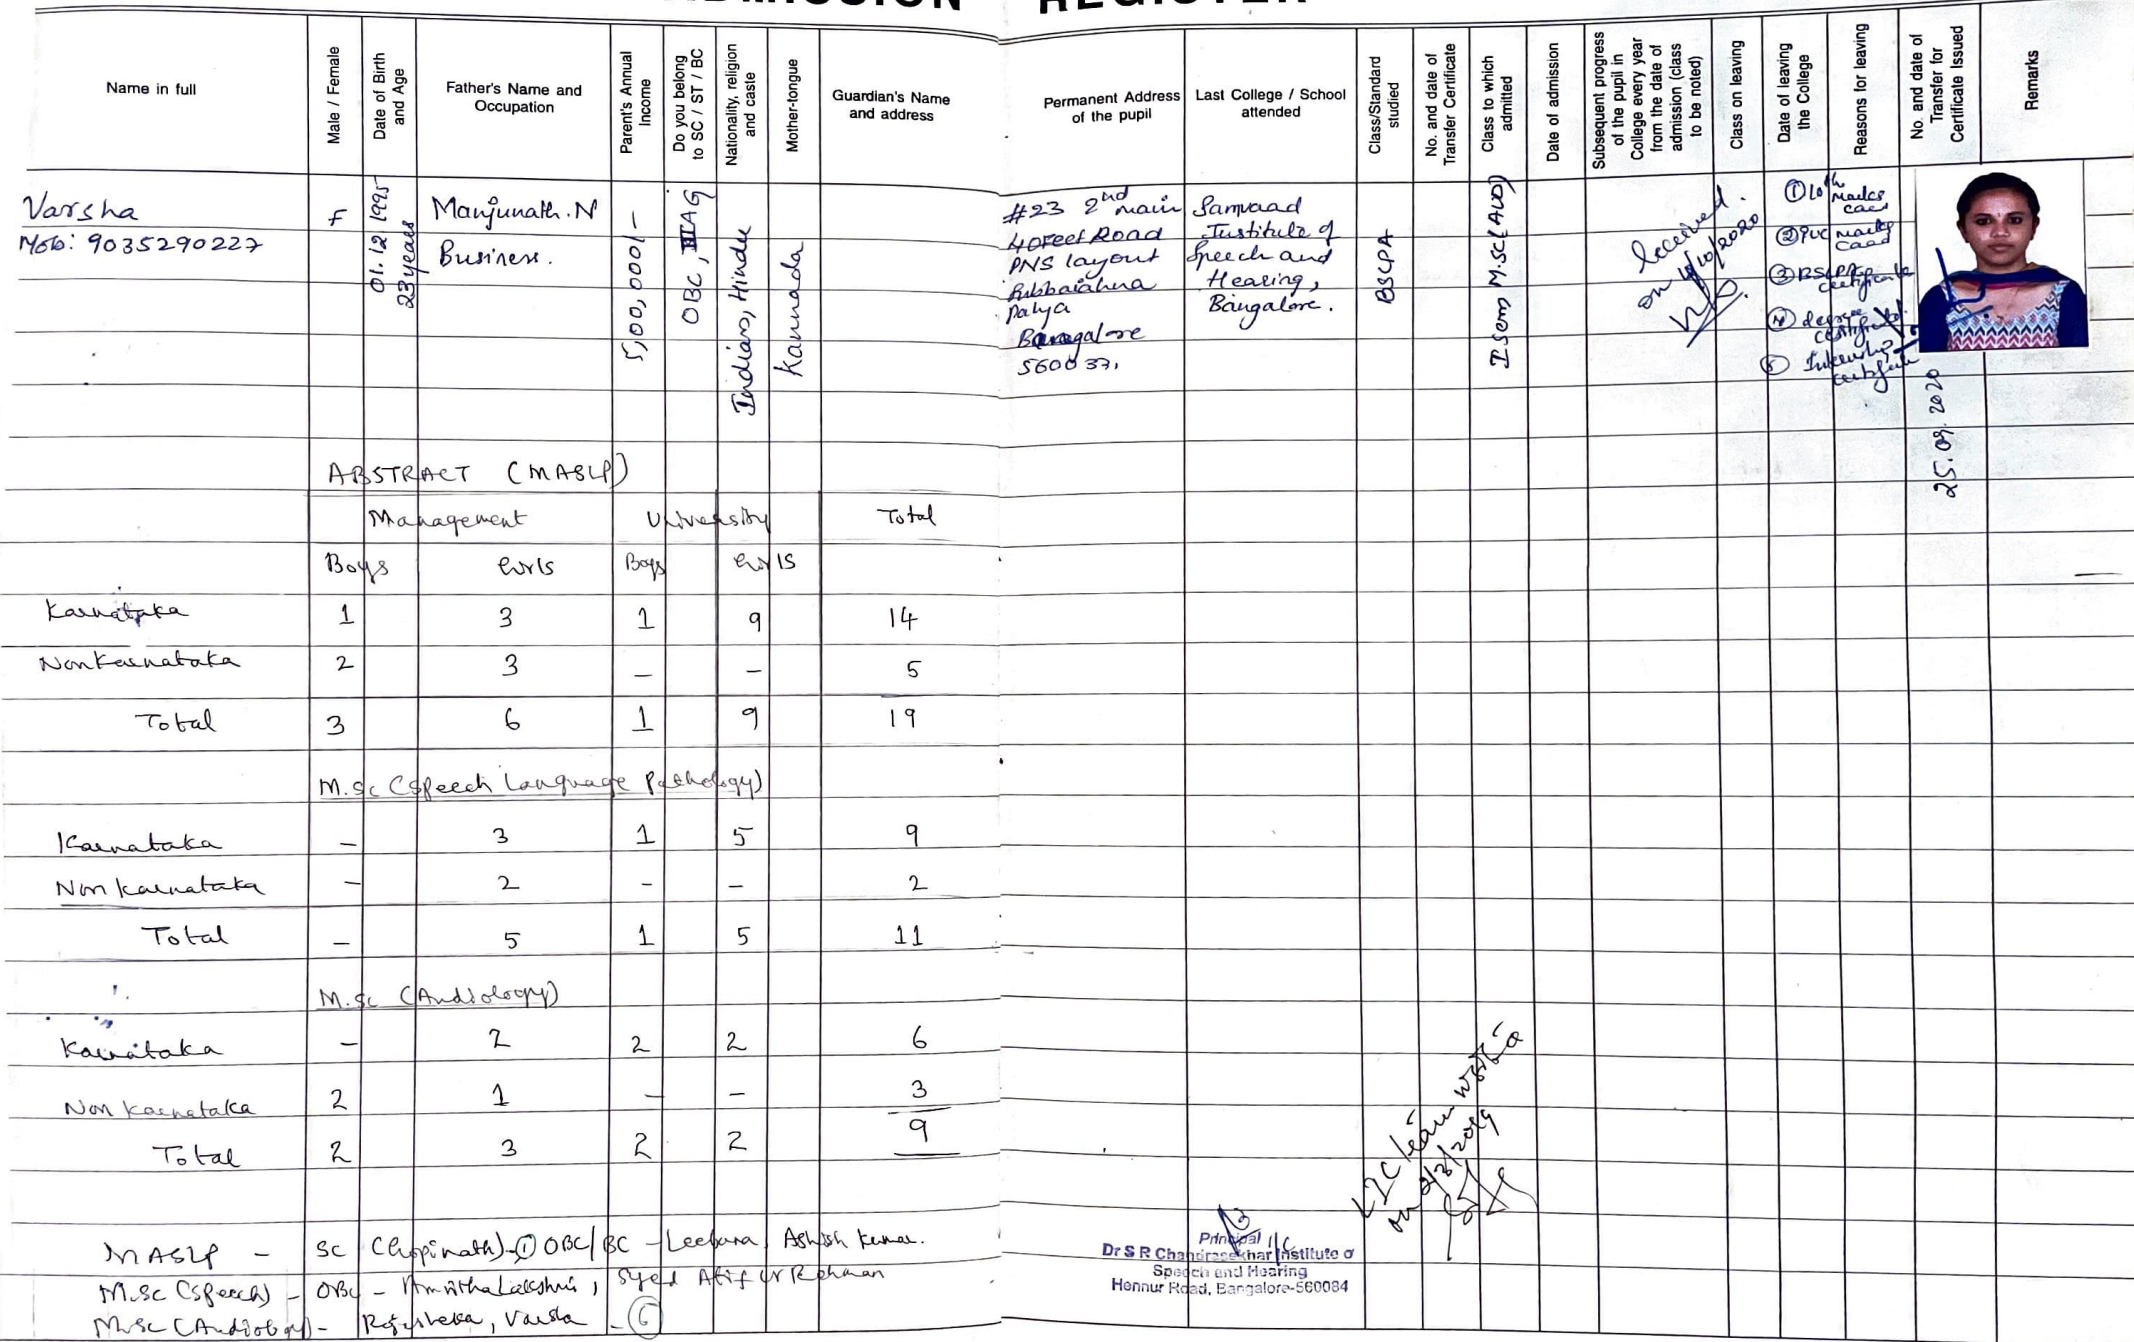 ADMISSION REGISTER
Name in full
Male / Female
Date of Birth and Age
Father's Name and Occupation
Parent's Annual Income
Do you belong to SC / ST / BC
Nationality, religion and caste
Mother-tongue
Guardian's Name and address
Permanent Address of the pupil
Last College / School attended
Class/Standard studied
No. and date of Transfer Certificate
Class to which admitted
Date of admission
Subsequent progress of the pupil in College every year from the date of admission (class to be noted)
Class on leaving
Date of leaving the College
Reasons for leaving
No. and date of Transfer for Certificate Issued
Remarks
Varsha
Mob: 9035290227
F
01.12.1995
23 years
Manjunath. N
Business.
5,00,000/-
OBC, III A G
Indian, Hindu
Kannada
#23 2nd main
40 Feet Road
PNS layout
palya
Bangalore
560037,
Samvaad
Institute of
Speech and
Hearing,
Bangalore.
BSCPA
I Sem M.Sc (AUD)
Received.
on /10/2020
① 10th marks card
② PUC marks card
③ certificate
④ degree certificate
⑤ Internship certificate
25.09.2020
ABSTRACT (MASLP)
Management University Total
Boys Girls Boys Girls
Karnataka 1 3 1 9 14
Non Karnataka 2 3 - - 5
Total 3 6 1 9 19
M.Sc (Speech Language Pathology)
Karnataka - 3 1 5 9
Non Karnataka - 2 - - 2
Total - 5 1 5 11
M.Sc (Audiology)
Karnataka - 2 2 2 6
Non Karnataka 2 1 - - 3
Total 2 3 2 2 9
LIC team
on
MASLP - SC (Guppinath) - ① OBC/BC - Leebana, Ashish Kumar.
M.Sc (Speech) - OBC - Amritha Lakshmi, Syed Atif Ur Rehman
M.Sc (Audiology) - Varsha - ⑥
Principal I/C
Dr S R Chandrasekhar Institute of
Speech and Hearing
Hennur Road, Bangalore-560084